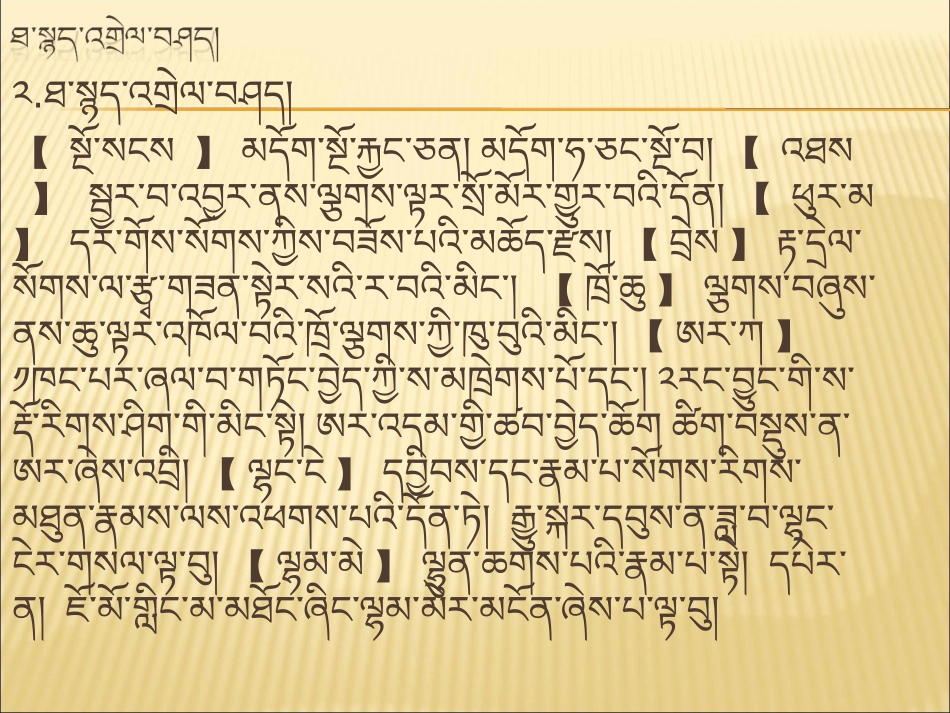 ཐ་སྙད་འགྲེལ་བཤད།
༢.ཐ་སྙད་འགྲེལ་བཤད།
【 སྔོ་སངས 】 མདོག་སྔོ་རྐྱང་ཅན། མདོག་ཧ་ཅང་སྔོ་བ། 【 འཐས
】 སྦྱར་བ་འབྱར་ནས་ལྕགས་ལྟར་སྲ་མོར་གྱུར་བའི་དོན། 【 ཕུར་མ
】 དར་གོས་སོགས་ཀྱིས་བཟོས་པའི་མཆོད་རྫས། 【 བྲེས 】 རྟ་དྲེལ་
སོགས་ལ་རྩྭ་གཟན་སྟེར་སའི་ར་བའི་མིང་། 【 ཁྲོ་ཆུ 】 ལྕགས་བཞུས་
ནས་ཆུ་ལྟར་འཁོལ་བའི་ཁྲོ་ལྕགས་ཀྱི་ཁུ་བུའི་མིང་། 【 ཨར་ཀ 】
༡།ཁང་པར་ཞལ་བ་གཏོང་བྱེད་ཀྱི་ས་མཁྲེགས་པོ་དང་། ༢རང་བྱུང་གི་ས་
རྡོ་རིགས་ཤིག་གི་མིང་སྟེ། ཨར་འདམ་གྱི་ཚབ་བྱེད་ཆོག ཚིག་བསྡུས་ན་
ཨར་ཞེས་འབྲི། 【 ལྷང་ངེ 】 དབྱིབས་དང་རྣམ་པ་སོགས་རིགས་
མཐུན་རྣམས་ལས་འཕགས་པའི་དོན་ཏེ། རྒྱུ་སྐར་དབུས་ན་ཟླ་བ་ལྷང་
ངེར་གསལ་ལྟ་བུ། 【 ལྷམ་མེ 】 ལྷུན་ཆགས་པའི་རྣམ་པ་སྟེ། དཔེར་
ན། ཇོ་མོ་གླིང་མ་མཐོང་ཞིང་ལྷམ་མེར་མངོན་ཞེས་པ་ལྟ་བུ།